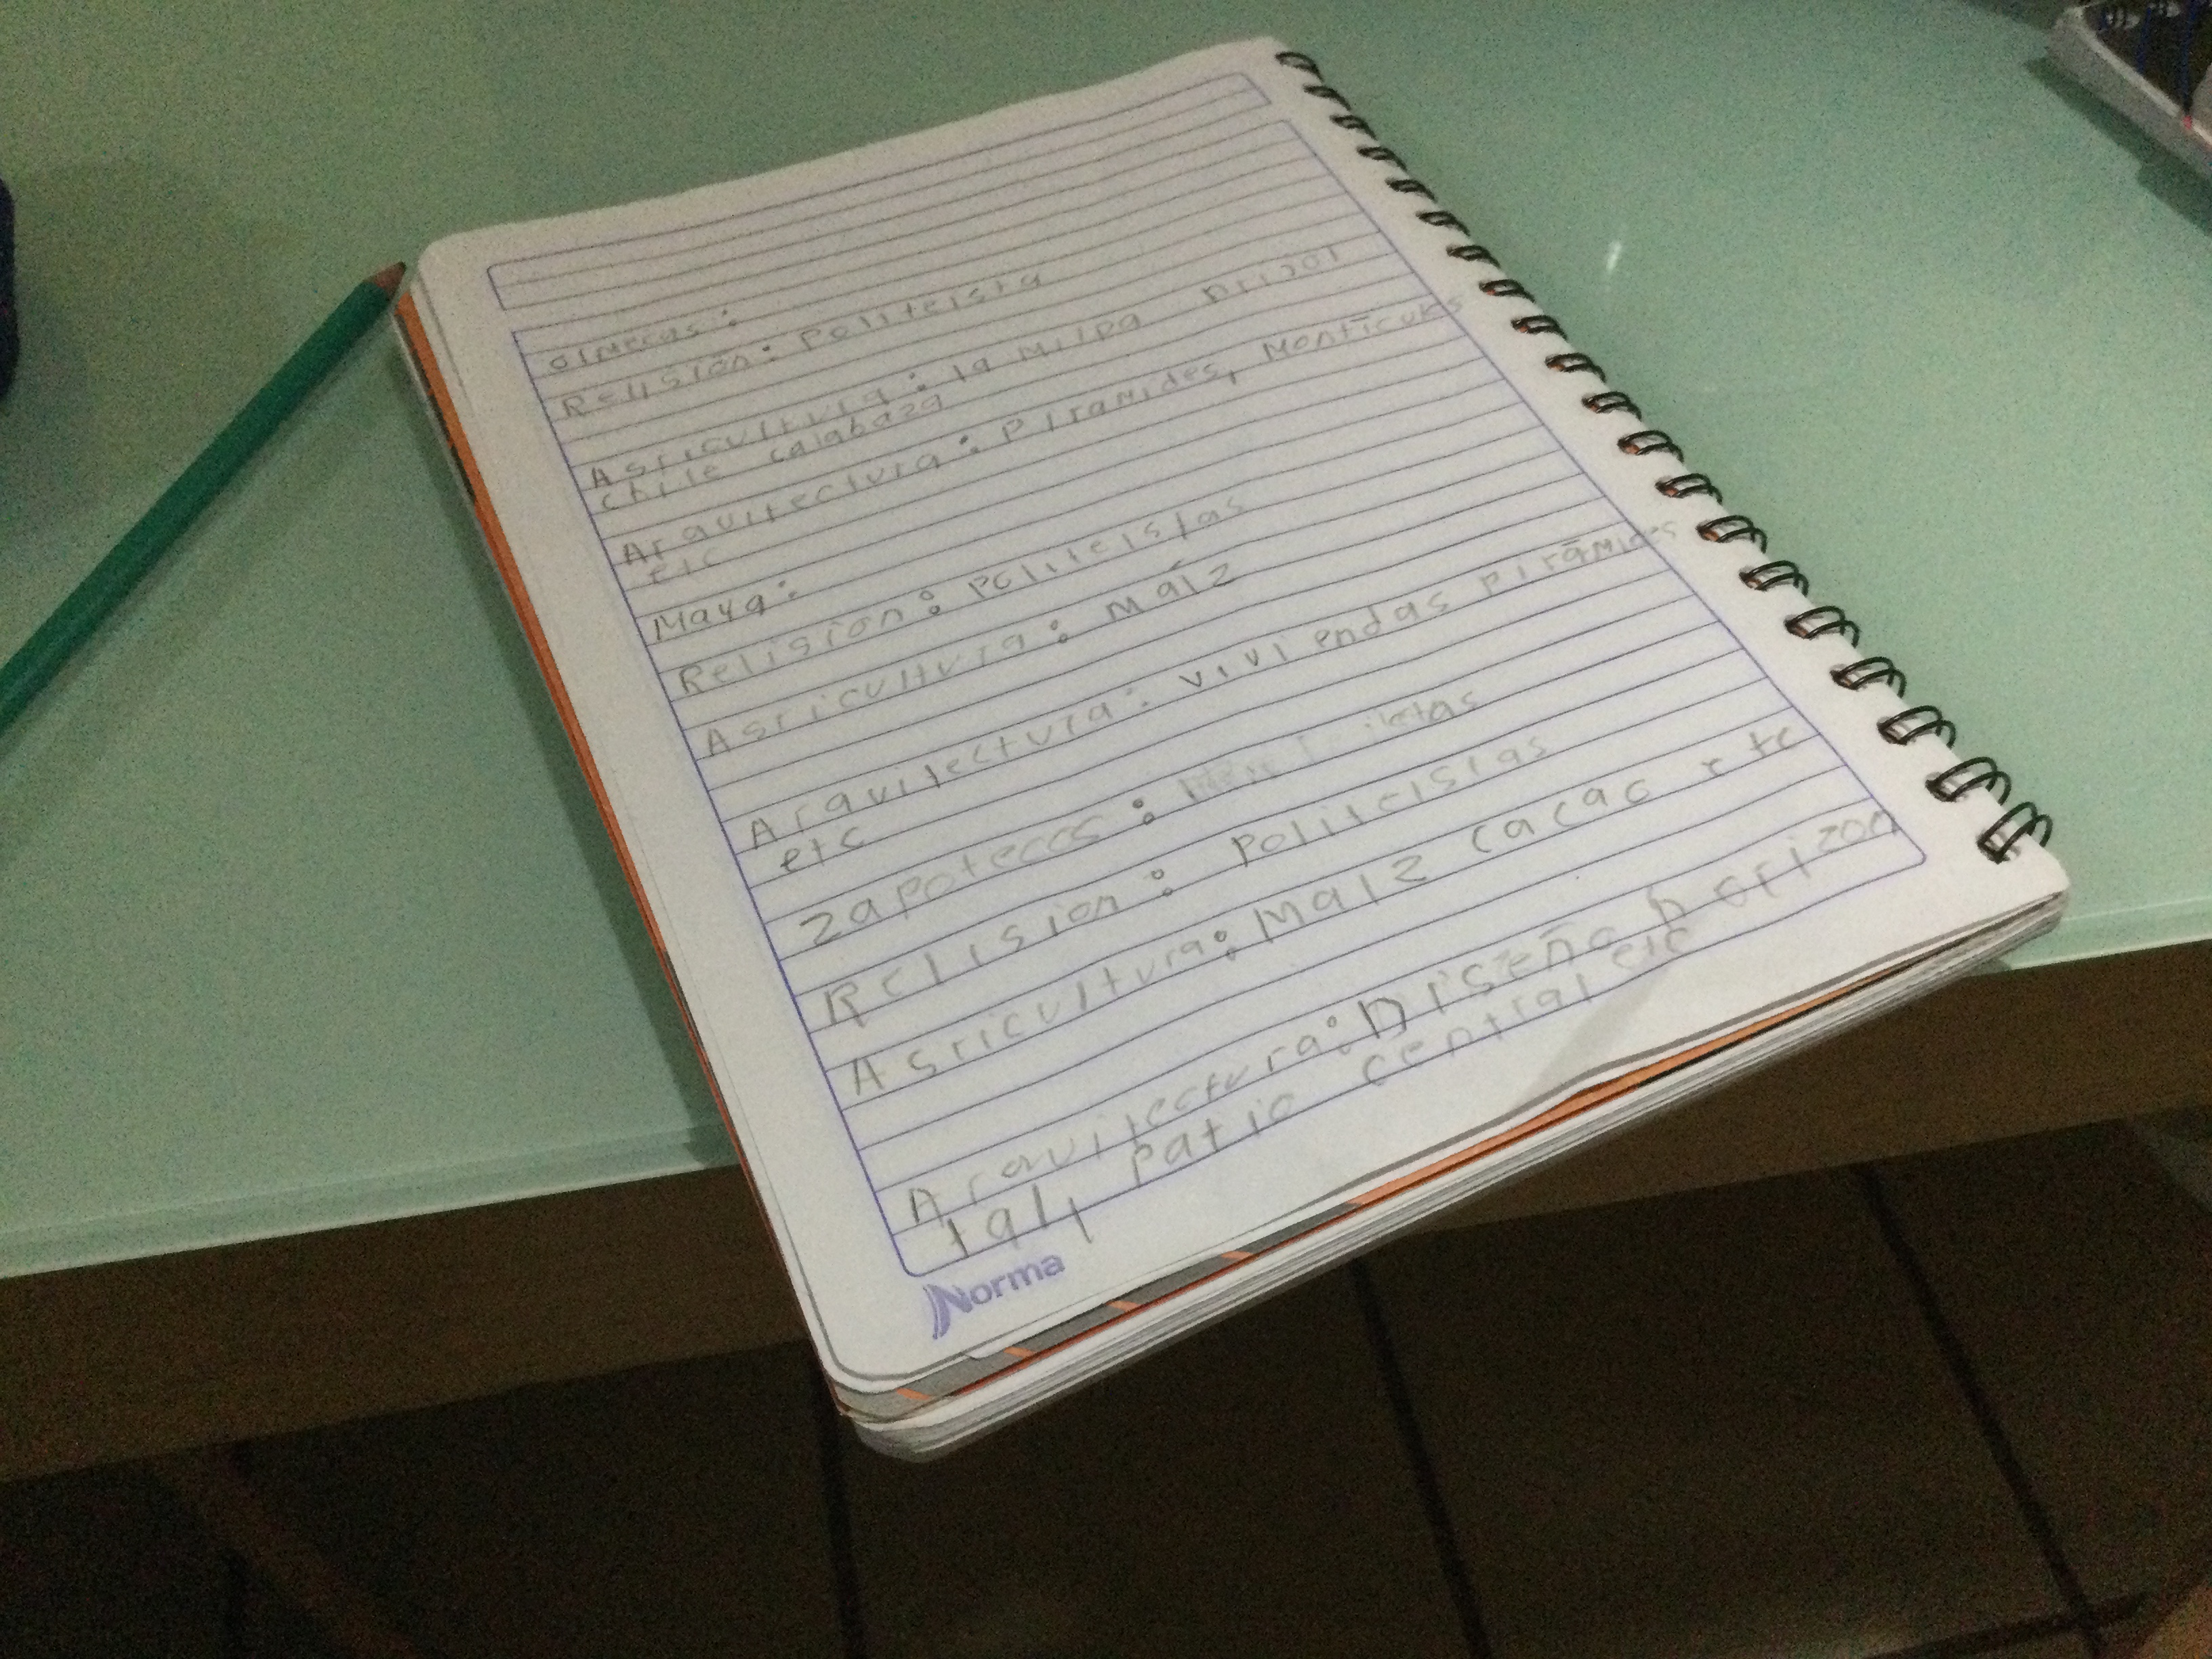 olmecas:
Religion: Politeista
Agricultura: la milpa frijol
chile calabaza
Arquitectura: Piramides, Montículos
etc
Maya:
Religion: Politeistas
Agricultura: maíz
Arquitectura: viviendas pirámides
etc
zapotecos:
Religion: politeistas
Agricultura: Maiz cacao etc
Arquitectura: Diseño horizon
tal, patio central etc
Norma